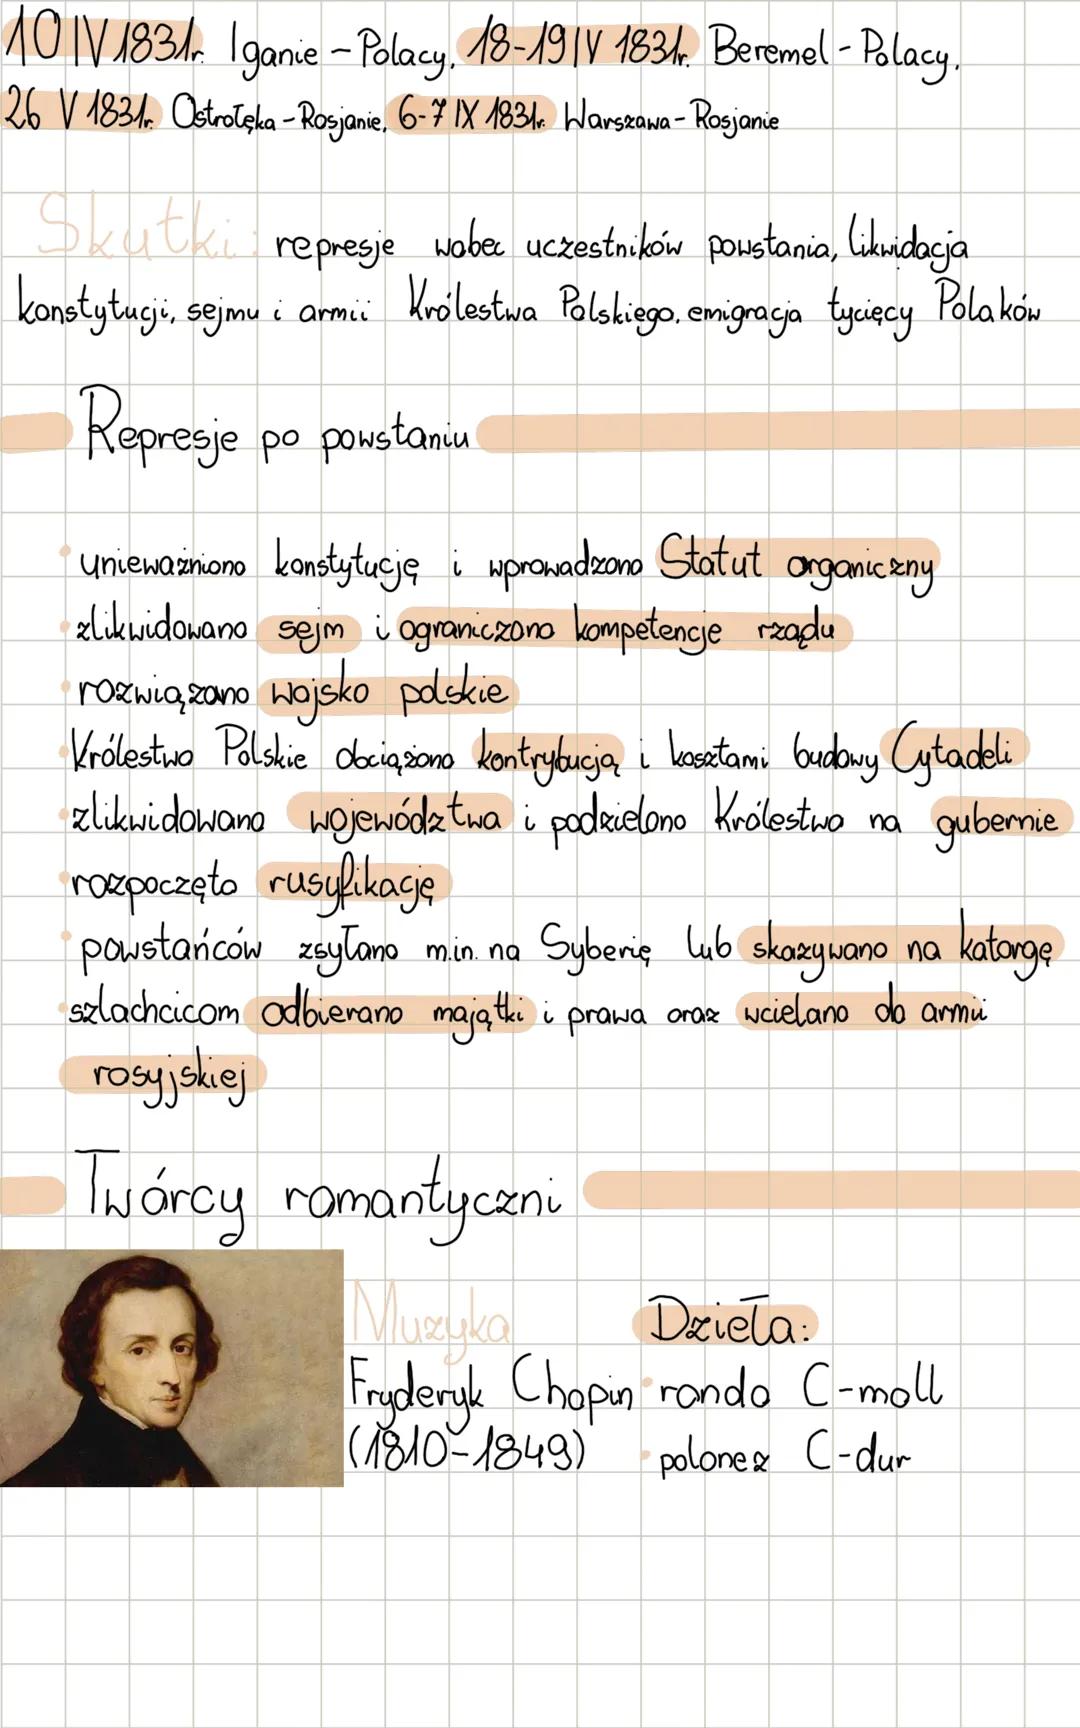 10 IV 1831r. Iganie - Polacy, 18-19 IV 1831r. Beremel - Polacy,
26 V 1831r. Ostrołęka - Rosjanie, 6-7 IX 1831r. Warszawa - Rosjanie
Skutki: represje wobec uczestników powstania, likwidacja
konstytucji, sejmu i armii Królestwa Polskiego, emigracja tycięcy Polaków
Represje po powstaniu
• unieważniono konstytucję i wprowadzono Statut organiczny
• zlikwidowano sejm i ograniczono kompetencje rządu
• rozwiązano wojsko polskie
• Królestwo Polskie obciążono kontrybucją i kosztami budowy Cytadeli
• zlikwidowano województwa i podzielono Królestwo na gubernie
• rozpoczęto rusyfikację
• powstańców zsyłano m.in. na Syberię lub skazywano na katorgę
• szlachcicom odbierano majątki i prawa oraz wcielano do armii
rosyjskiej
Twórcy romantyczni
Muzyka
Fryderyk Chopin
(1810-1849)
Dzieła:
• rondo C-moll
• polonez C-dur